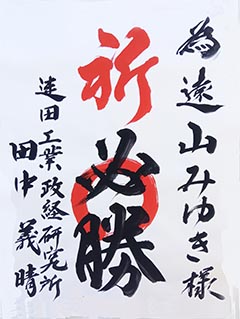 為遠山みゆき様
祈必勝
蓮田工業政経研究所
田中義晴